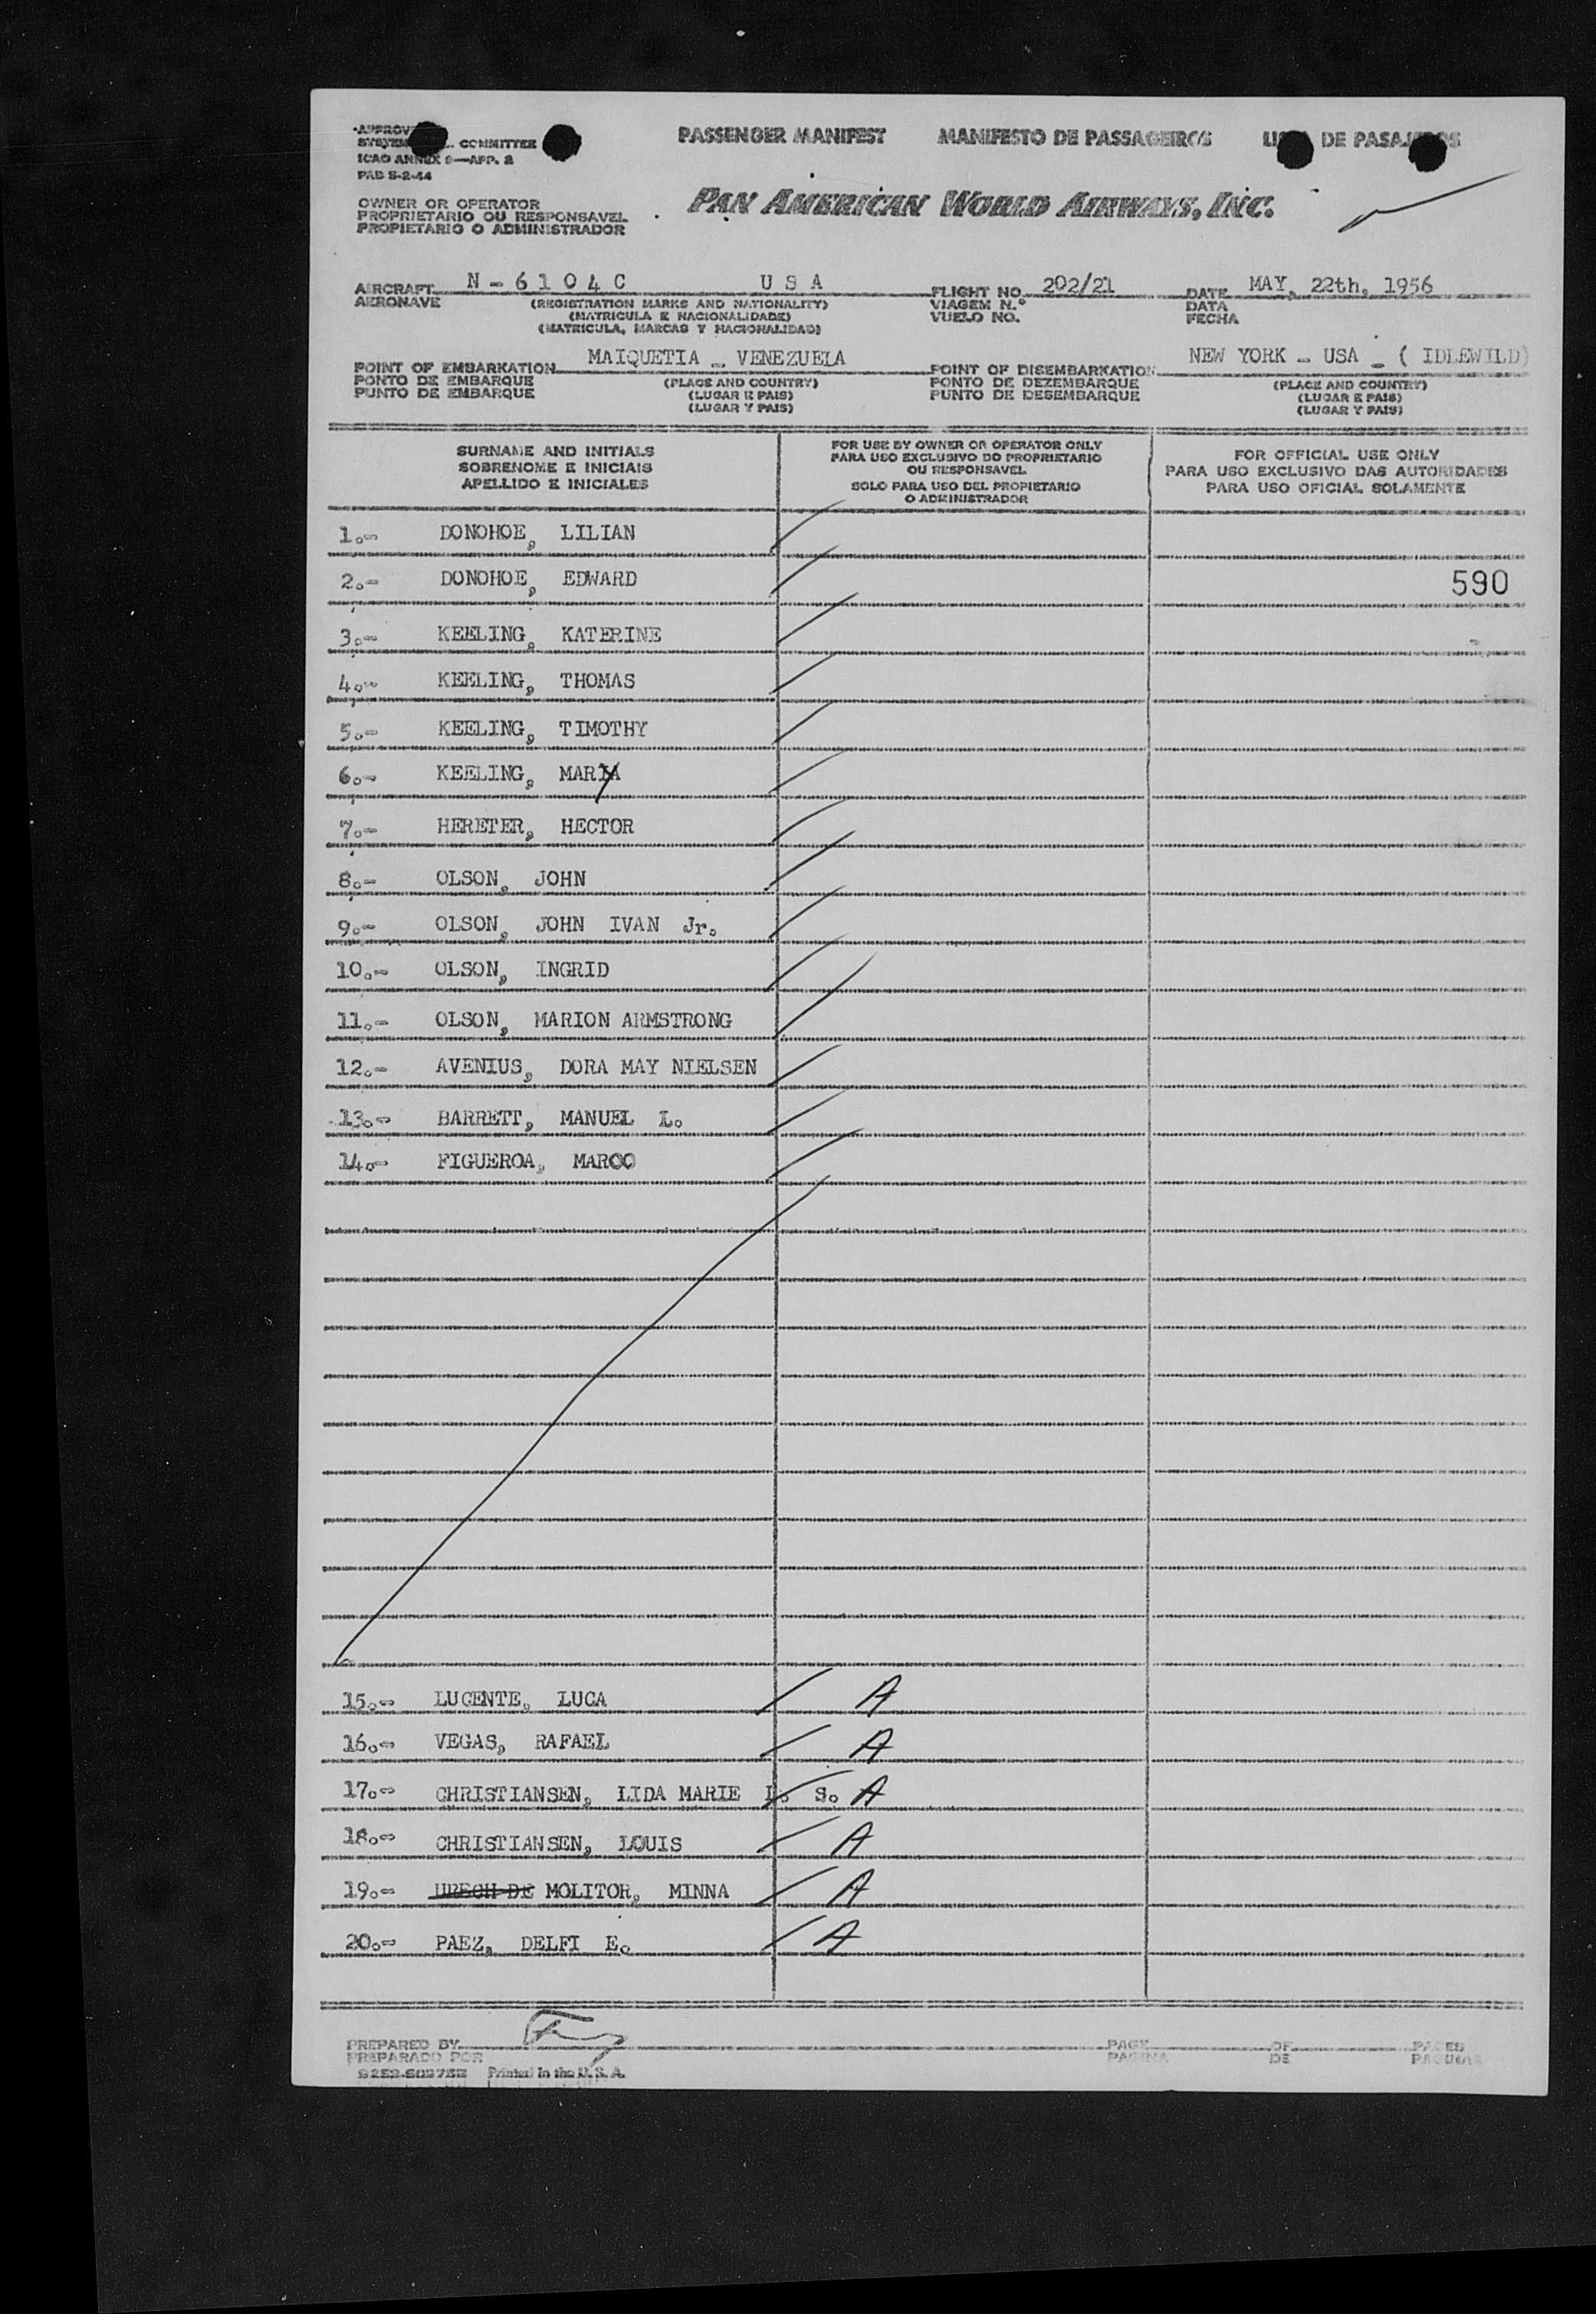 PASSENGER MANIFEST MANIFESTO DE PASSAGEIROS DE
COMMITTEE
ICAO ANNEX 9—APP. 2
PAB 5-2-44
OWNER OR OPERATOR
PROPRIETARIO OU RESPONSAVEL
PROPIETARIO O ADMINISTRADOR
PAN AMERICAN WORLD AIRWAYS, INC.
AIRCRAFT N-6104C USA FLIGHT NO. 202/21 DATE MAY, 22th, 1956
AERONAVE (REGISTRATION MARKS AND NATIONALITY) VIAGEM N.° DATA
(MATRICULA E NACIONALIDADE) VUELO NO. FECHA
(MATRICULA, MARCAS Y NACIONALIDAD)
POINT OF EMBARKATION MAIQUETIA - VENEZUELA POINT OF DISEMBARKATION NEW YORK - USA - ( IDLEWILD)
PONTO DE EMBARQUE (PLACE AND COUNTRY) PONTO DE DEZEMBARQUE (PLACE AND COUNTRY)
PUNTO DE EMBARQUE (LUGAR E PAIS) PUNTO DE DESEMBARQUE (LUGAR E PAIS)
(LUGAR Y PAIS) (LUGAR Y PAIS)
SURNAME AND INITIALS
SOBRENOME E INICIAIS
APELLIDO E INICIALES
FOR USE BY OWNER OR OPERATOR ONLY
PARA USO EXCLUSIVO DO PROPRIETARIO
OU RESPONSAVEL
SOLO PARA USO DEL PROPIETARIO
O ADMINISTRADOR
FOR OFFICIAL USE ONLY
PARA USO EXCLUSIVO DAS AUTORIDADES
PARA USO OFICIAL SOLAMENTE
1.- DONOHOE, LILIAN
2.- DONOHOE, EDWARD 590
3.- KEELING, KATERINE
4.- KEELING, THOMAS
5.- KEELING, TIMOTHY
6.- KEELING, MARY
7.- HERETER, HECTOR
8.- OLSON, JOHN
9.- OLSON, JOHN IVAN Jr.
10.- OLSON, INGRID
11.- OLSON, MARION ARMSTRONG
12.- AVENIUS, DORA MAY NIELSEN
13.- BARRETT, MANUEL L.
14.- FIGUEROA, MARCO
15.- LUCENTE, LUCA A
16.- VEGAS, RAFAEL A
17.- CHRISTIANSEN, LIDA MARIE L. S. A
18.- CHRISTIANSEN, LOUIS A
19.- URECH DE MOLITOR, MINNA A
20.- PAEZ, DELFI E. A
PREPARED BY PAGE OF PAGES
PREPARADO POR PAGINA DE PAGINAS
Printed in the U.S.A.